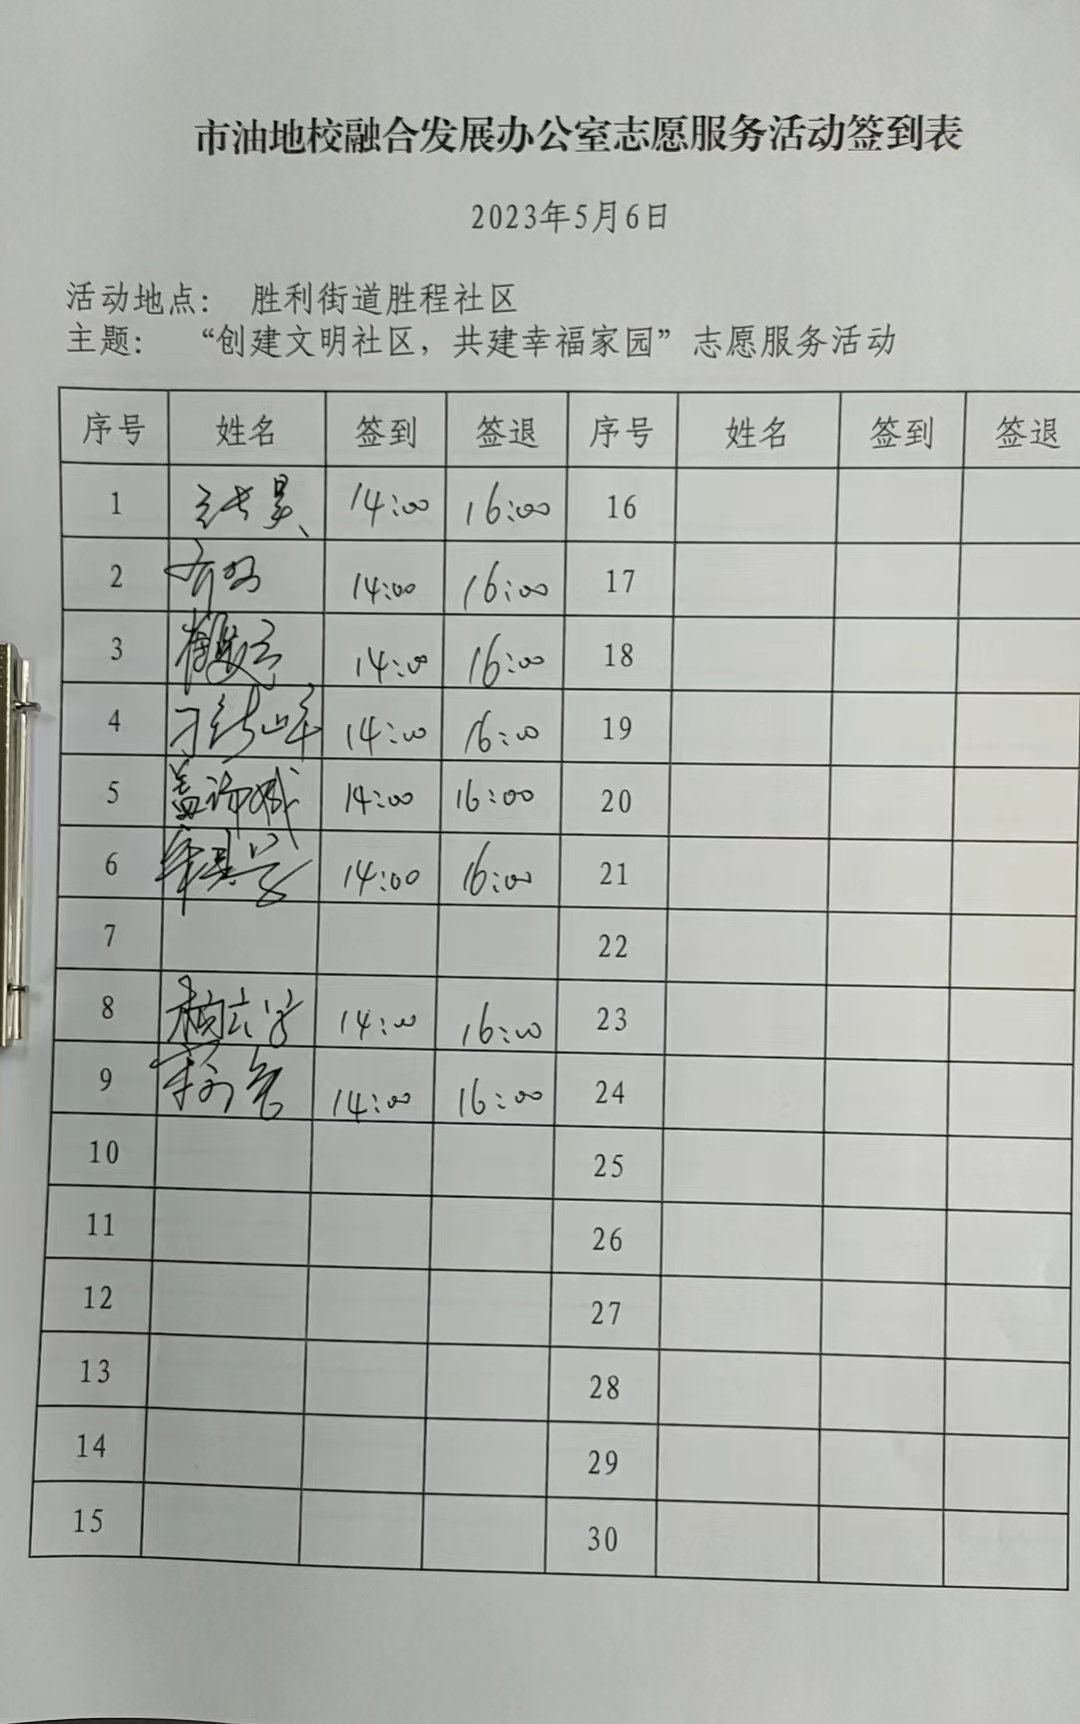 市油地校融合发展办公室志愿服务活动签到表
2023年5月6日
活动地点： 胜利街道胜程社区
主题： “创建文明社区，共建幸福家园”志愿服务活动
序号 姓名 签到 签退 序号 姓名 签到 签退
1 14:00 16:00 16
2 14:00 16:00 17
3 14:00 16:00 18
4 14:00 16:00 19
5 14:00 16:00 20
6 14:00 16:00 21
7 22
8 14:00 16:00 23
9 14:00 16:00 24
10 25
11 26
12 27
13 28
14 29
15 30